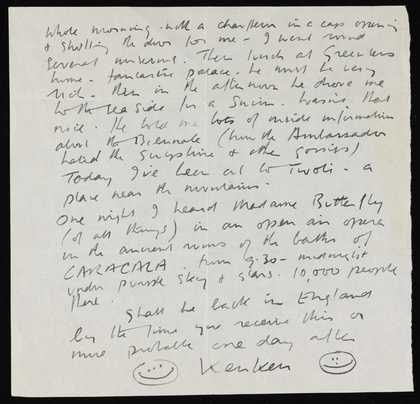 whole morning - with a chauffeur in a cap opening
& shutting the door for me - I went round
several museums. Then lunch at
home - fantastic palace - he must be very
rich - then in the afternoon he drove me
to the sea side for a swim. wasn't that
nice. He told me lots of inside information
about the Biennale (how the Ambassador
hated the Sculpture & other gossips)
Today I've been out to Tivoli - a
place near the mountains.
One night I heard Madame Butterfly
(of all things) in an open air opera
in the ancient ruins of the baths of
CARACALA. from 9.30 - midnight
under purple sky & stars. 10,000 people
there.
Shall be back in England
by the time you receive this or
more probable one day after
Kenken